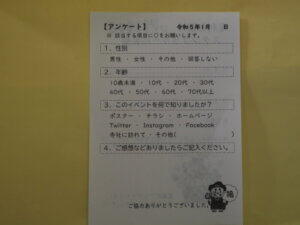 【アンケート】 令和5年1月 日
※ 該当する項目に○をお願いします。
1．性別
男性 ・ 女性 ・ その他 ・ 回答しない
2．年齢
10歳未満 ・ 10代 ・ 20代 ・ 30代
40代 ・ 50代 ・ 60代 ・ 70代以上
3．このイベントを何で知りましたか？
ポスター ・ チラシ ・ ホームページ
Twitter ・ Instagram ・ Facebook
寺社に訪れて ・ その他(
4．ご感想などありましたらご記入ください。
ご協力ありがとうございました